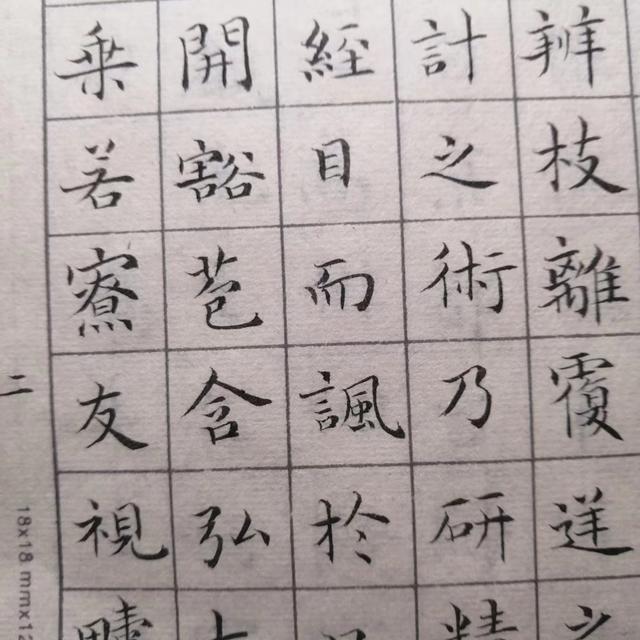 辨枝離覆逆之
計之術乃研精
經目而諷於
開豁苞含弘
乘若寮友視疇
二
18x18 mmx12